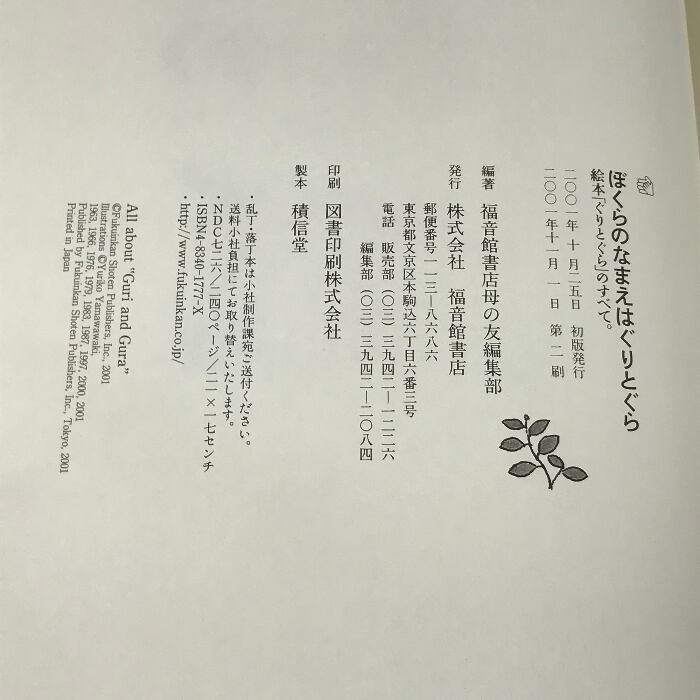 ぼくらのなまえはぐりとぐら
絵本「ぐりとぐら」のすべて。
二〇〇一年 十 月二五日 初版発行
二〇〇一年十一月 一 日 第 二 刷
編著 福音館書店母の友編集部
発行 株式会社 福音館書店
郵便番号一一三―八六八六
東京都文京区本駒込六丁目六番三号
電話 販売部 (〇三) 三九四二―一二二六
編集部 (〇三) 三九四二―二〇八四
印刷 図書印刷株式会社
製本 積信堂
・乱丁・落丁本は小社制作課宛ご送付ください。
送料小社負担にてお取り替えいたします。
・NDC七二六/二四〇ページ/二一×一七センチ
・ISBN4-8340-1777-X
・http://www.fukuinkan.co.jp/
All about "Guri and Gura"
©Fukuinkan Shoten Publishers, Inc., 2001
Illustrations ©Yuriko Yamawaki,
1963, 1966, 1976, 1979, 1983, 1987, 1997, 2000, 2001
Published by Fukuinkan Shoten Publishers, Inc., Tokyo, 2001
Printed in Japan